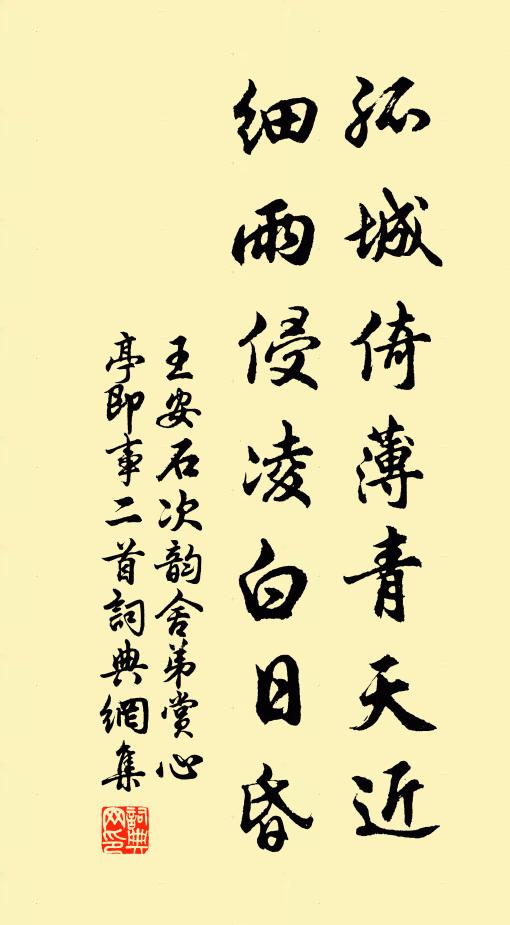 孤城倚薄青天近
細雨侵凌白日昏
王安石次韵舍弟賞心
亭即事二首詞典網集
詞典
网印